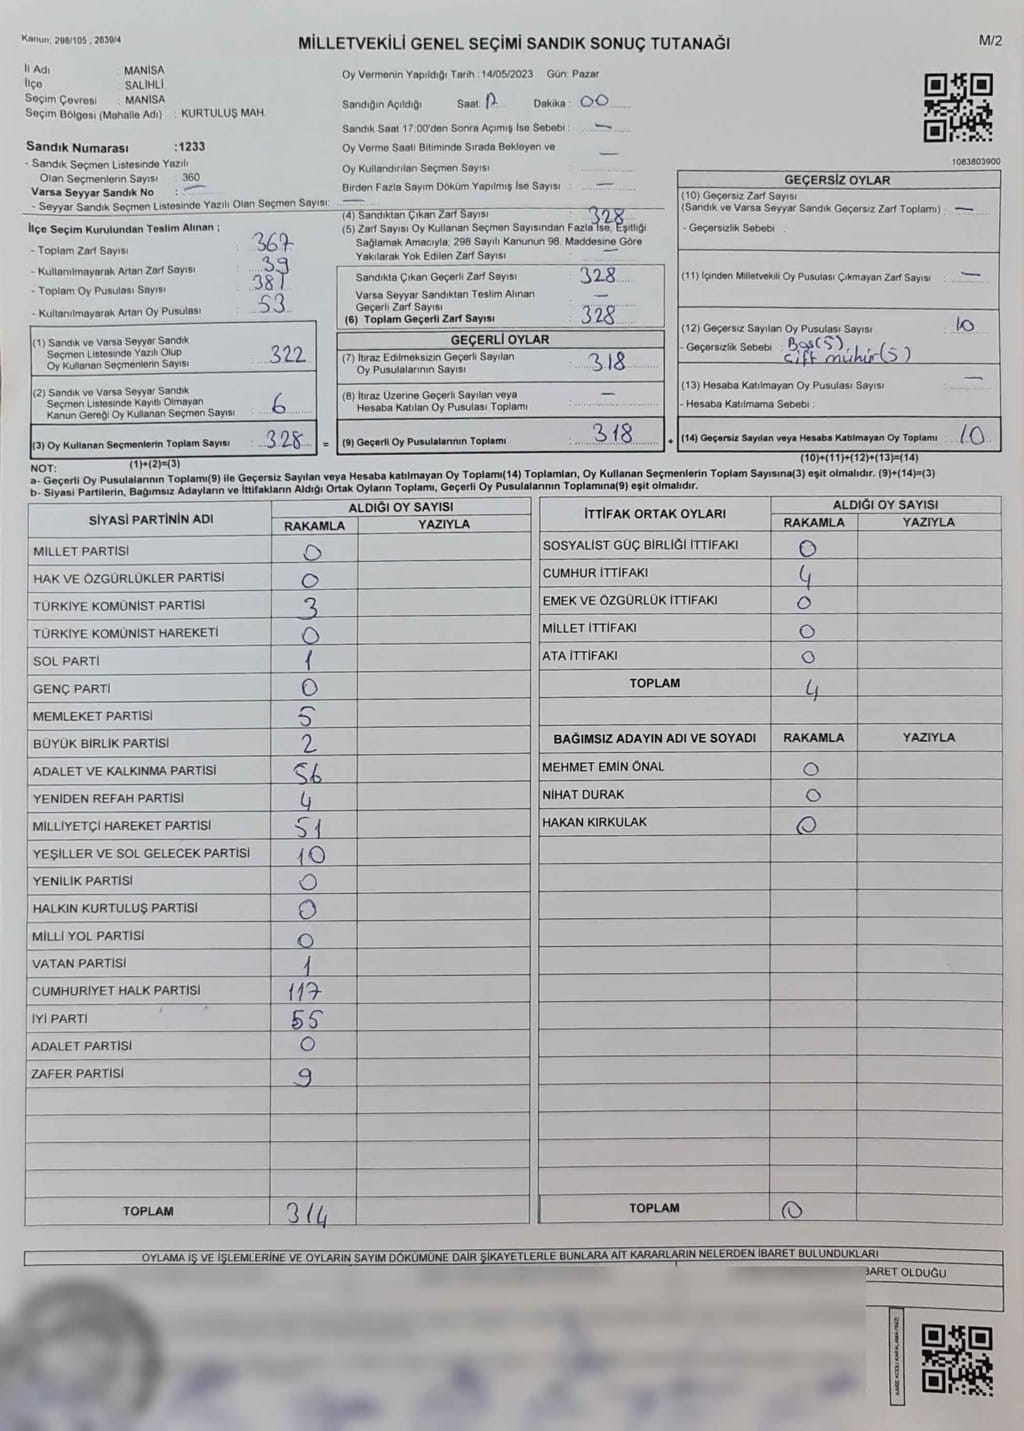 Kanun; 298/105 , 2839/4
MİLLETVEKİLİ GENEL SEÇİMİ SANDIK SONUÇ TUTANAĞI
M/2
İl Adı : MANİSA
İlçe SALİHLİ
Seçim Çevresi : MANİSA
Seçim Bölgesi (Mahalle Adı) : KURTULUŞ MAH.
Sandık Numarası :1233
- Sandık Seçmen Listesinde Yazılı
Olan Seçmenlerin Sayısı : 360
Varsa Seyyar Sandık No : —
- Seyyar Sandık Seçmen Listesinde Yazılı Olan Seçmen Sayısı: —
Oy Vermenin Yapıldığı Tarih :14/05/2023 Gün: Pazar
Sandığın Açıldığı Saat: Dakika : 00
Sandık Saat 17:00'den Sonra Açımış İse Sebebi : —
Oy Verme Saati Bitiminde Sırada Bekleyen ve
Oy Kullandırılan Seçmen Sayısı : —
Birden Fazla Sayım Döküm Yapılmış İse Sayısı : —
1083803900
İlçe Seçim Kurulundan Teslim Alınan ;
- Toplam Zarf Sayısı : 367
- Kullanılmayarak Artan Zarf Sayısı : 39
- Toplam Oy Pusulası Sayısı : 381
- Kullanılmayarak Artan Oy Pusulası : 53
(1) Sandık ve Varsa Seyyar Sandık
Seçmen Listesinde Yazılı Olup
Oy Kullanan Seçmenlerin Sayısı : 322
(2) Sandık ve Varsa Seyyar Sandık
Seçmen Listesinde Kayıtlı Olmayan
Kanun Gereği Oy Kullanan Seçmen Sayısı : 6
(3) Oy Kullanan Seçmenlerin Toplam Sayısı : 328 =
(1)+(2)=(3)
(4) Sandıktan Çıkan Zarf Sayısı : 328
(5) Zarf Sayısı Oy Kullanan Seçmen Sayısından Fazla İse, Eşitliği
Sağlamak Amacıyla; 298 Sayılı Kanunun 98. Maddesine Göre
Yakılarak Yok Edilen Zarf Sayısı : —
Sandıkta Çıkan Geçerli Zarf Sayısı : 328
Varsa Seyyar Sandıktan Teslim Alınan
Geçerli Zarf Sayısı : —
(6) Toplam Geçerli Zarf Sayısı : 328
GEÇERLİ OYLAR
(7) İtiraz Edilmeksizin Geçerli Sayılan
Oy Pusulalarının Sayısı : 318
(8) İtiraz Üzerine Geçerli Sayılan veya
Hesaba Katılan Oy Pusulası Toplamı : —
(9) Geçerli Oy Pusulalarının Toplamı : 318 +
GEÇERSİZ OYLAR
(10) Geçersiz Zarf Sayısı
(Sandık ve Varsa Seyyar Sandık Geçersiz Zarf Toplamı) : —
- Geçersizlik Sebebi :
(11) İçinden Milletvekili Oy Pusulası Çıkmayan Zarf Sayısı : —
(12) Geçersiz Sayılan Oy Pusulası Sayısı : 10
- Geçersizlik Sebebi : Boş(5),
çift mühür(5)
(13) Hesaba Katılmayan Oy Pusulası Sayısı : —
- Hesaba Katılmama Sebebi :
(14) Geçersiz Sayılan veya Hesaba Katılmayan Oy Toplamı : 10
(10)+(11)+(12)+(13)=(14)
NOT:
a- Geçerli Oy Pusulalarının Toplamı(9) ile Geçersiz Sayılan veya Hesaba katılmayan Oy Toplamı(14) Toplamları, Oy Kullanan Seçmenlerin Toplam Sayısına(3) eşit olmalıdır. (9)+(14)=(3)
b- Siyasi Partilerin, Bağımsız Adayların ve İttifakların Aldığı Ortak Oyların Toplamı, Geçerli Oy Pusulalarının Toplamına(9) eşit olmalıdır.
SİYASİ PARTİNİN ADI ALDIĞI OY SAYISI
RAKAMLA YAZIYLA
MİLLET PARTİSİ 0
HAK VE ÖZGÜRLÜKLER PARTİSİ 0
TÜRKİYE KOMÜNİST PARTİSİ 3
TÜRKİYE KOMÜNİST HAREKETİ 0
SOL PARTİ 1
GENÇ PARTİ 0
MEMLEKET PARTİSİ 5
BÜYÜK BİRLİK PARTİSİ 2
ADALET VE KALKINMA PARTİSİ 56
YENİDEN REFAH PARTİSİ 4
MİLLİYETÇİ HAREKET PARTİSİ 51
YEŞİLLER VE SOL GELECEK PARTİSİ 10
YENİLİK PARTİSİ 0
HALKIN KURTULUŞ PARTİSİ 0
MİLLİ YOL PARTİSİ 0
VATAN PARTİSİ 1
CUMHURİYET HALK PARTİSİ 117
İYİ PARTİ 55
ADALET PARTİSİ 0
ZAFER PARTİSİ 9
TOPLAM 314
İTTİFAK ORTAK OYLARI ALDIĞI OY SAYISI
RAKAMLA YAZIYLA
SOSYALİST GÜÇ BİRLİĞİ İTTİFAKI 0
CUMHUR İTTİFAKI 4
EMEK VE ÖZGÜRLÜK İTTİFAKI 0
MİLLET İTTİFAKI 0
ATA İTTİFAKI 0
TOPLAM 4
BAĞIMSIZ ADAYIN ADI VE SOYADI RAKAMLA YAZIYLA
MEHMET EMİN ÖNAL 0
NİHAT DURAK 0
HAKAN KIRKULAK 0
TOPLAM 0
OYLAMA İŞ VE İŞLEMLERİNE VE OYLARIN SAYIM DÖKÜMÜNE DAİR ŞİKAYETLERLE BUNLARA AİT KARARLARIN NELERDEN İBARET BULUNDUKLARI
BARET OLDUĞU